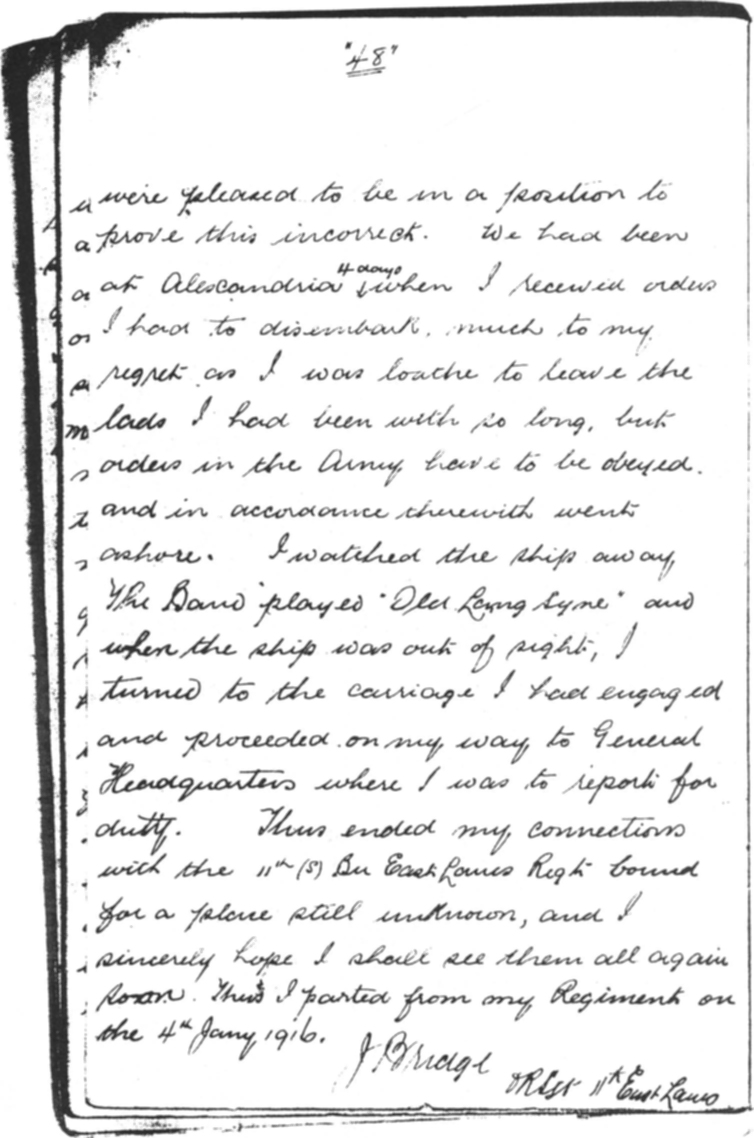 "48"
were pleased to be in a position to
prove this incorrect. We had been
at Alexcandria 4 days when I received orders
I had to disembark. much to my
regret as I was loathe to leave the
lads I had been with so long, but
orders in the Army have to be obeyed.
and in accordance therewith went
ashore. I watched the ship away
The Band played "Old Lang Syne" and
when the ship was out of sight, I
turned to the carriage I had engaged
and proceeded on my way to General
Headquarters where I was to report for
dutty. Thus ended my connections
with the 11th (S) Bn East Lancs Regt bound
for a place still unknown, and I
sincerely hope I shall see them all again
soon. Thus I parted from my Regiment on
the 4th Jany 1916.
J Bridge
11th East Lancs